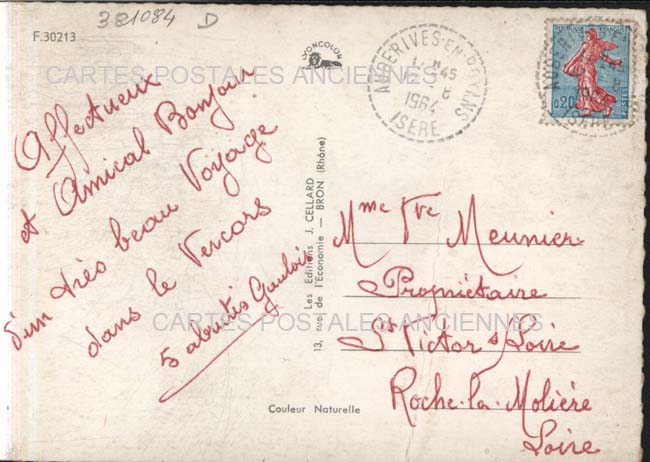 381084 D
F.30213
LYONCOLOR
CARTES POSTALES ANCIENNES
Affectueux
et Amical Bonjour
d'un très beau Voyage
dans le Vercors
5 Gaulois
13, rue de l'Economie — BRON (Rhône)
Les Editions J. CELLARD
Couleur Naturelle
AUBERIVES-EN-ROYANS
45
1964
ISERE
0,20
POSTES
Mme Vve Meunier
Propriétaire
St Victor s/Loire
Roche-la-Molière
Loire
CARTES POSTALES ANCIENNES